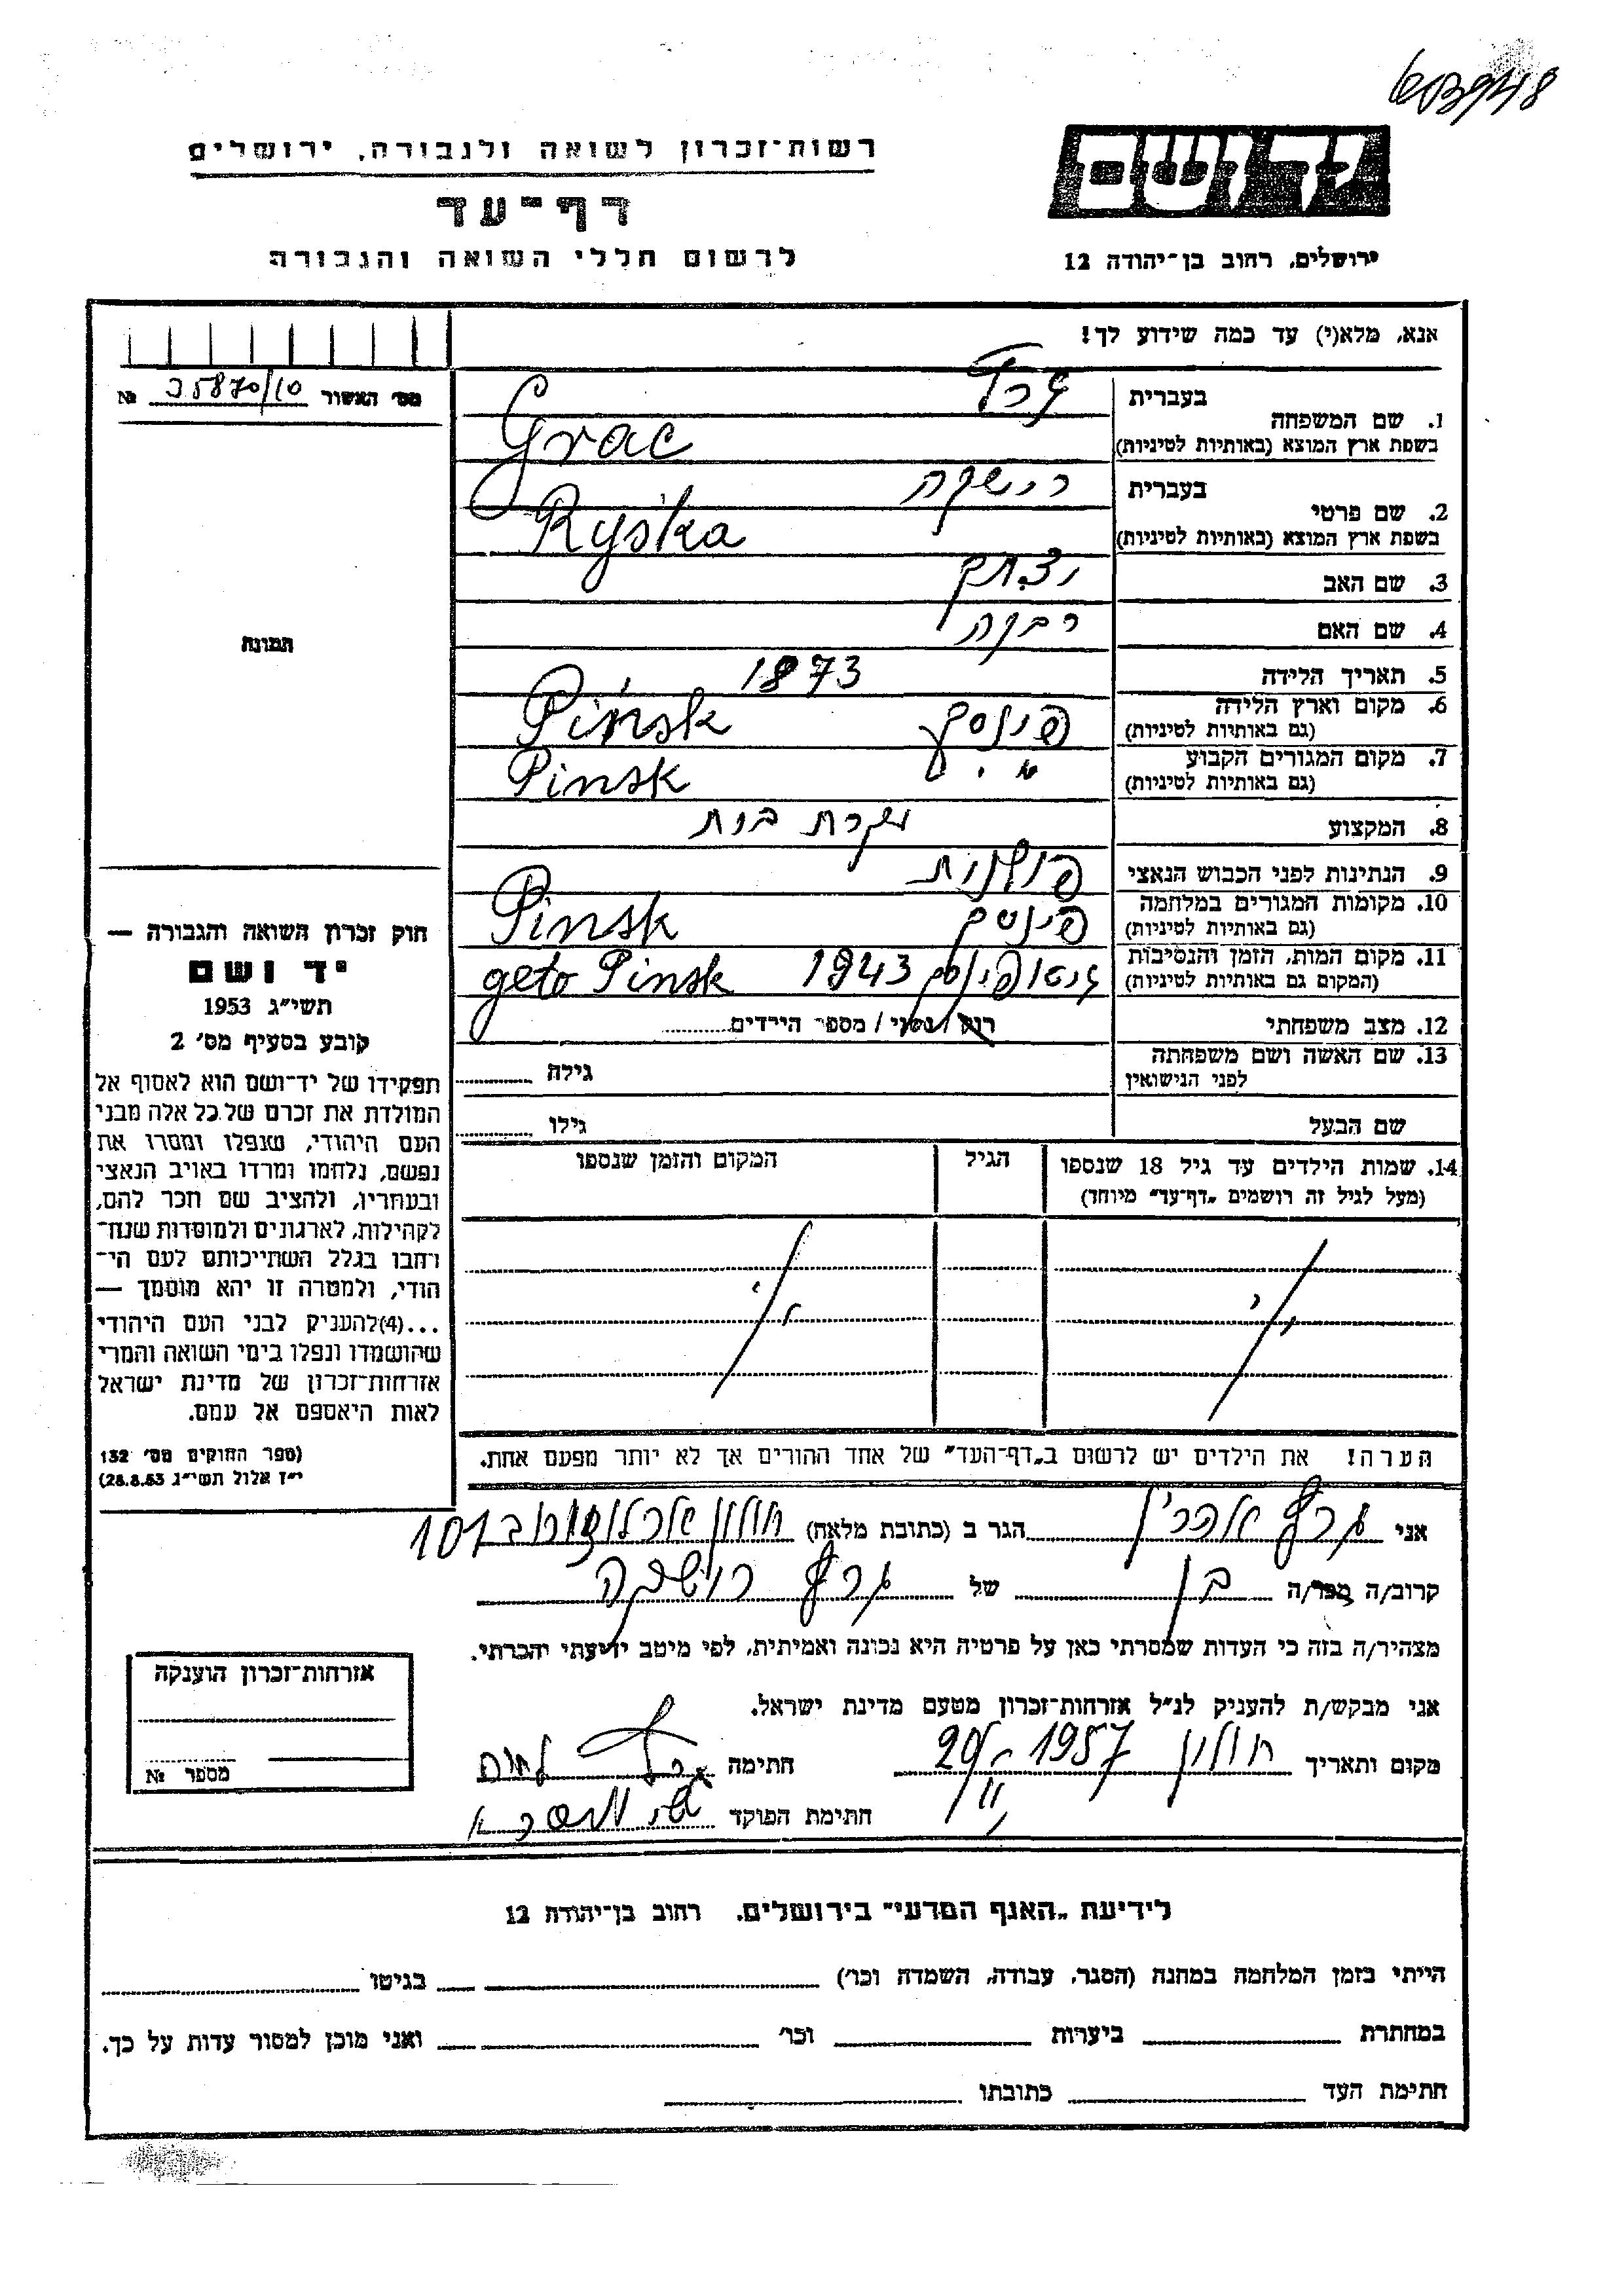 רשות־זכרון לשואה ולגבורה, ירושלים
דף־עד
לרשום חללי השואה והגבורה
יד ושם
ירושלים, רחוב בן־יהודה 12
אנא, מלא(י) עד כמה שידוע לך!
מס׳ האשור 35870/10 №
תמונה
חוק זכרון השואה והגבורה —
יד ושם
תשי״ג 1953
קובע בסעיף מס׳ 2
תפקידו של יד־ושם הוא לאסוף אל
המולדת את זכרם של כל אלה מבני
העם היהודי, שנפלו ומסרו את
נפשם, נלחמו ומרדו באויב הנאצי
ובעוזריו, ולהציב שם וזכר להם,
לקהילות, לארגונים ולמוסדות שנח־
רבו בגלל השתייכותם לעם הי־
הודי, ולמטרה זו יהא מוסמך —
...(4)להעניק לבני העם היהודי
שהושמדו ונפלו בימי השואה והמרי
אזרחות־זכרון של מדינת ישראל
לאות היאספם אל עמם.
(ספר החוקים מס׳ 132
י״ז אלול תשי״ג 28.8.53)
בעברית גרץ
1. שם המשפחה
בשפת ארץ המוצא (באותיות לטיניות) Grac
בעברית רישקה
2. שם פרטי
בשפת ארץ המוצא (באותיות לטיניות) Ryśka
3. שם האב יצחק
4. שם האם רבקה
5. תאריך הלידה 1873
6. מקום וארץ הלידה פינסק Pińsk
(גם באותיות לטיניות)
7. מקום המגורים הקבוע Pinsk
(גם באותיות לטיניות)
8. המקצוע עקרת בית
9. הנתינות לפני הכבוש הנאצי פולנית
10. מקומות המגורים במלחמה פינסק Pinsk
(גם באותיות לטיניות)
11. מקום המות, הזמן והנסיבות גיטו פינסק 1943 geto Pinsk
(המקום גם באותיות לטיניות)
12. מצב משפחתי רוק/נשוי/מספר הילדים
13. שם האשה ושם משפחתה גילה
לפני הנישואין
שם הבעל גילו
14. שמות הילדים עד גיל 18 שנספו הגיל המקום והזמן שנספו
(מעל לגיל זה רושמים „דף־עד״ מיוחד)
הערה! את הילדים יש לרשום ב„דף־העד״ של אחד ההורים אך לא יותר מפעם אחת.
אני גרץ הגר ב (כתובת מלאה) חולון 101
קרוב/ה מכר/ה בן של גרץ רישקה
מצהיר/ה בזה כי העדות שמסרתי כאן על פרטיה היא נכונה ואמיתית, לפי מיטב ידיעתי והכרתי.
אני מבקש/ת להעניק לנ״ל אזרחות־זכרון מטעם מדינת ישראל.
מקום ותאריך חולון 1957 חתימה
חתימת הפוקד
אזרחות־זכרון הוענקה
מספר №
לידיעת „האגף המדעי״ בירושלים. רחוב בן־יהודה 12
הייתי בזמן המלחמה במחנה (הסגר, עבודה, השמדה וכו׳) בגיטו
במחתרת ביערות וכו׳ ואני מוכן למסור עדות על כך.
חתימת העד כתובתו